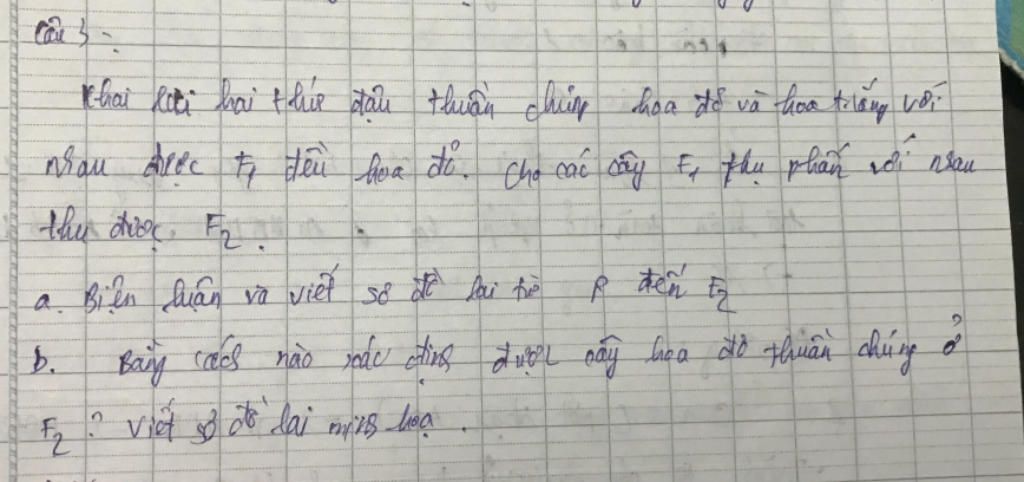 Câu 3:
Khai lai hai thứ đậu thuần chủng hoa đỏ và hoa trắng với
nhau được F1 đều hoa đỏ. Cho các cây F1 thụ phấn với nhau
thu được F2.
a. Biện luận và viết sơ đồ lai từ P đến F2
b. Bằng cách nào xác định được cây hoa đỏ thuần chủng ở
F2? Viết sơ đồ lai minh hoạ.